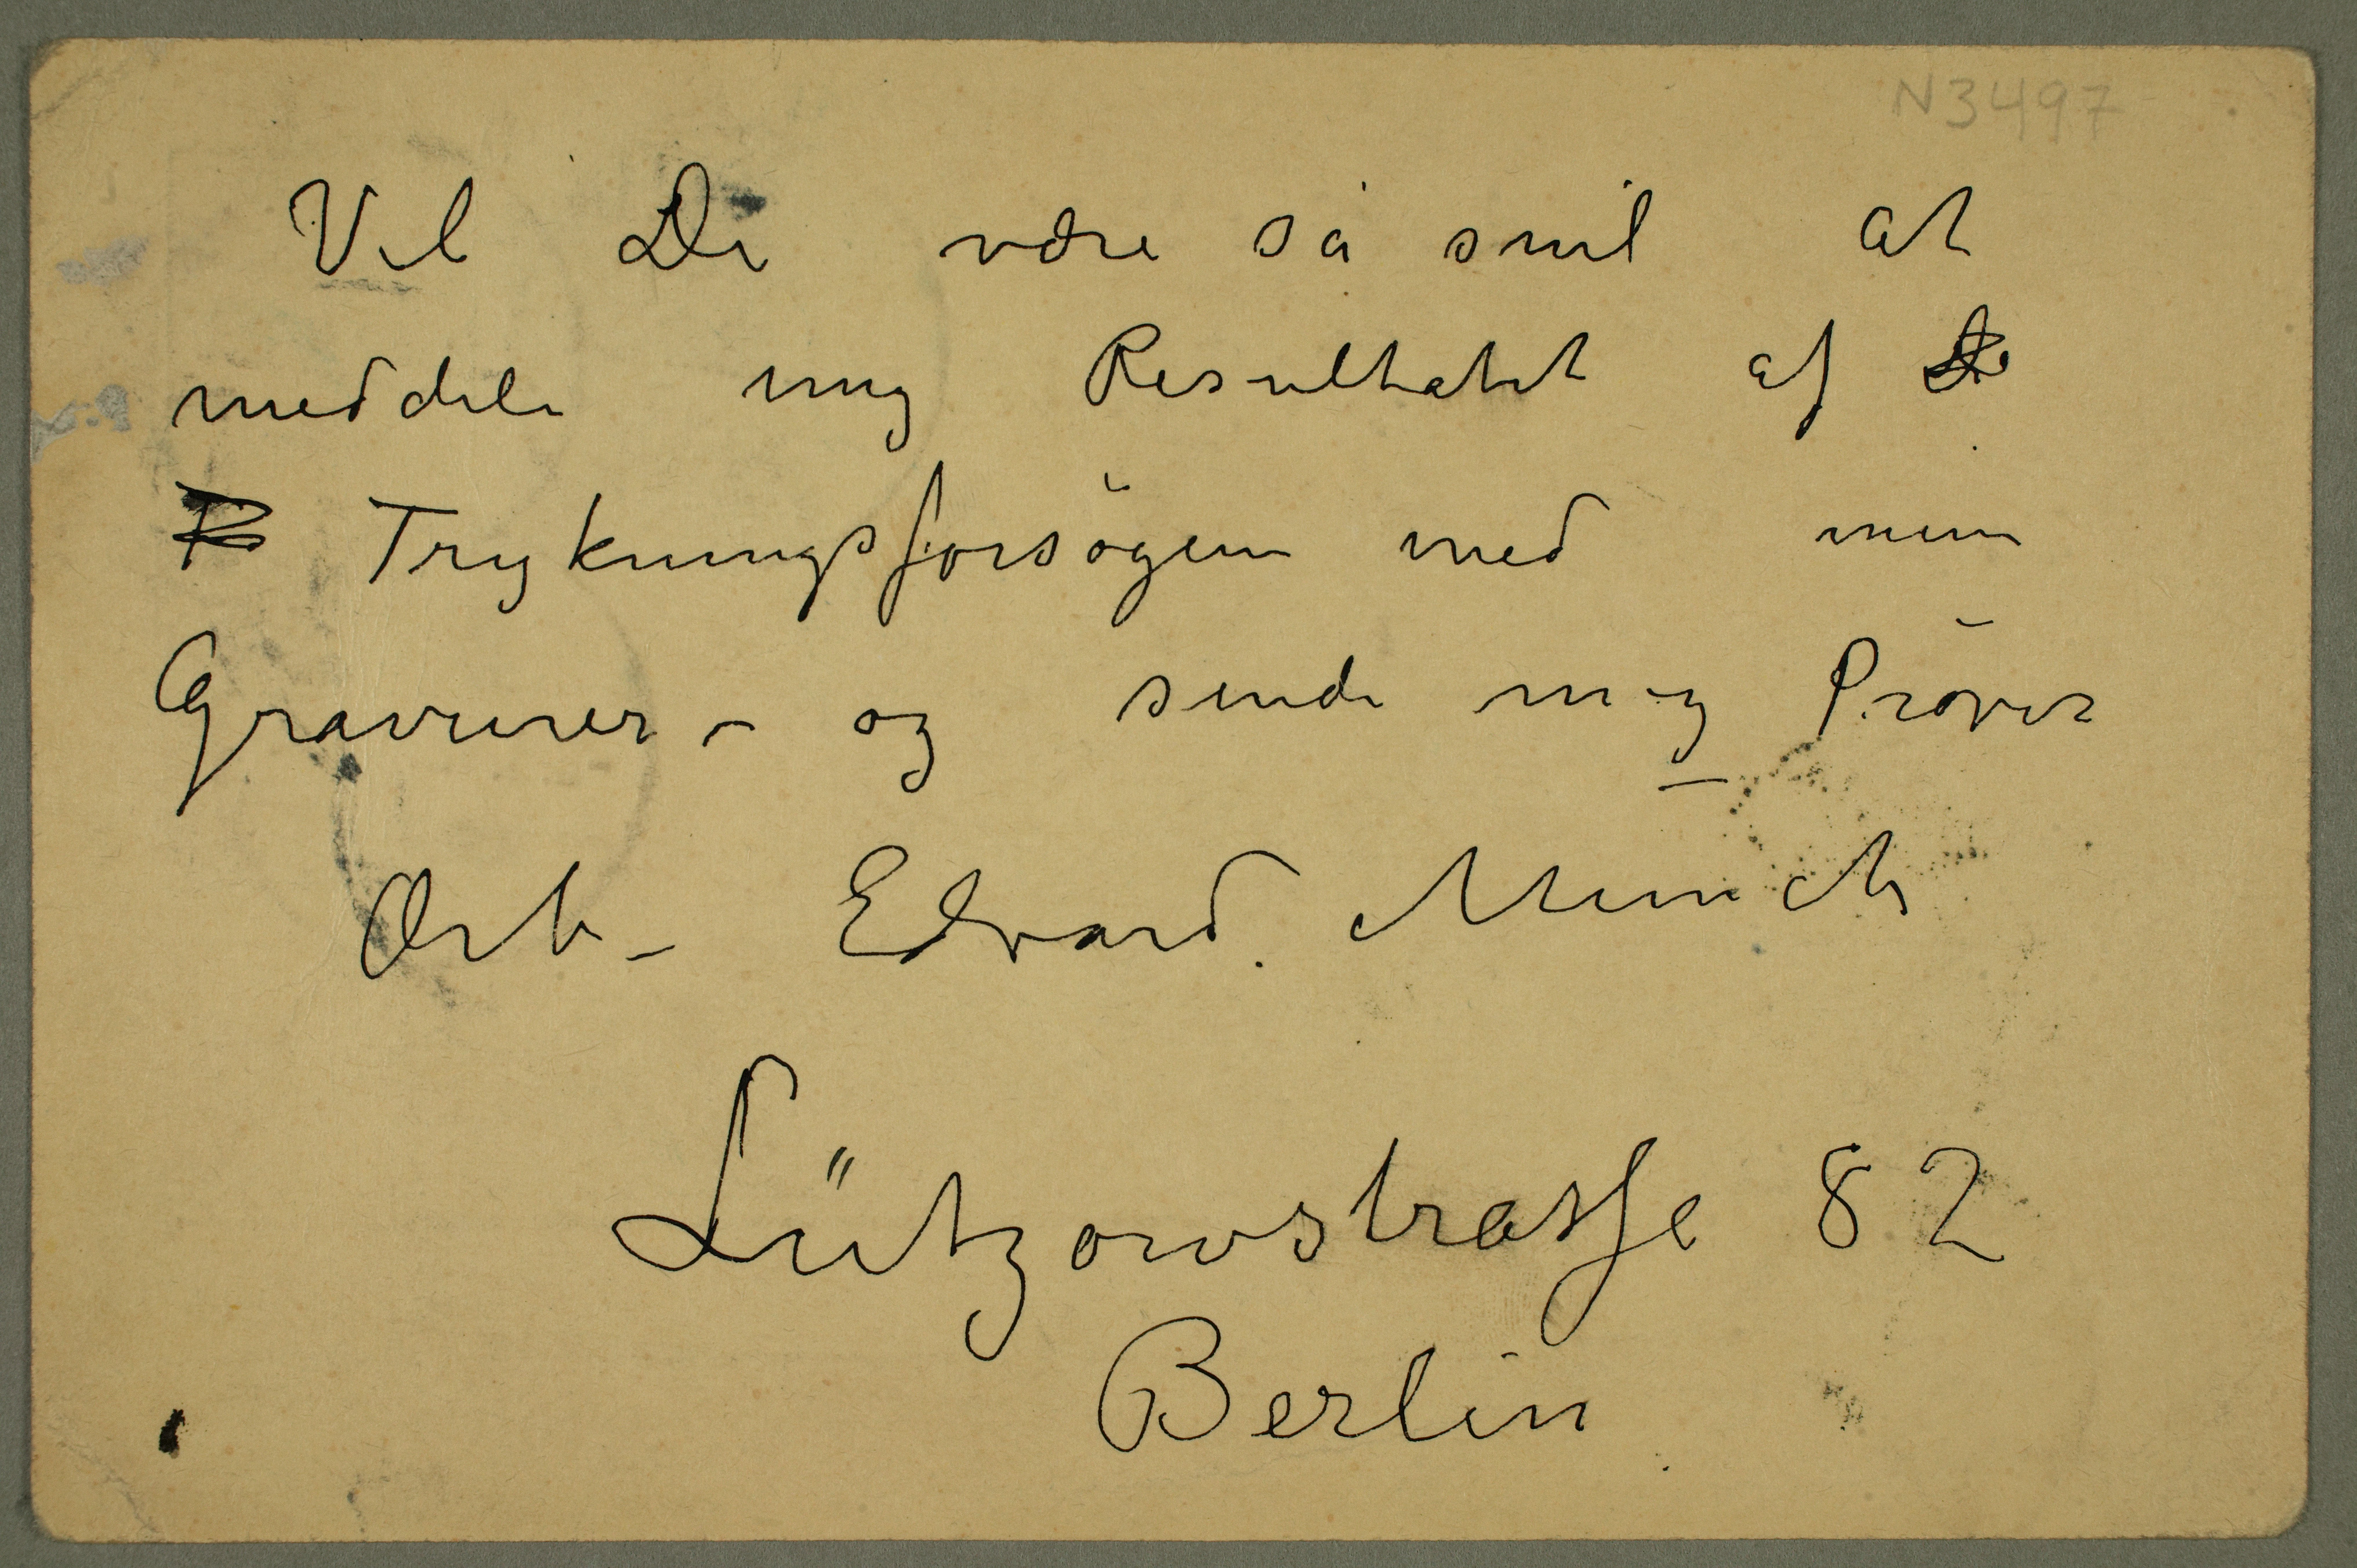 N3497
Vil De være så snil at
meddele mig Resultatet af
Trykningsforsögene med mine
Graverurer – og sende mig Pröver
Ærb – Edvard Munch
Lützowstrasse 82
Berlin